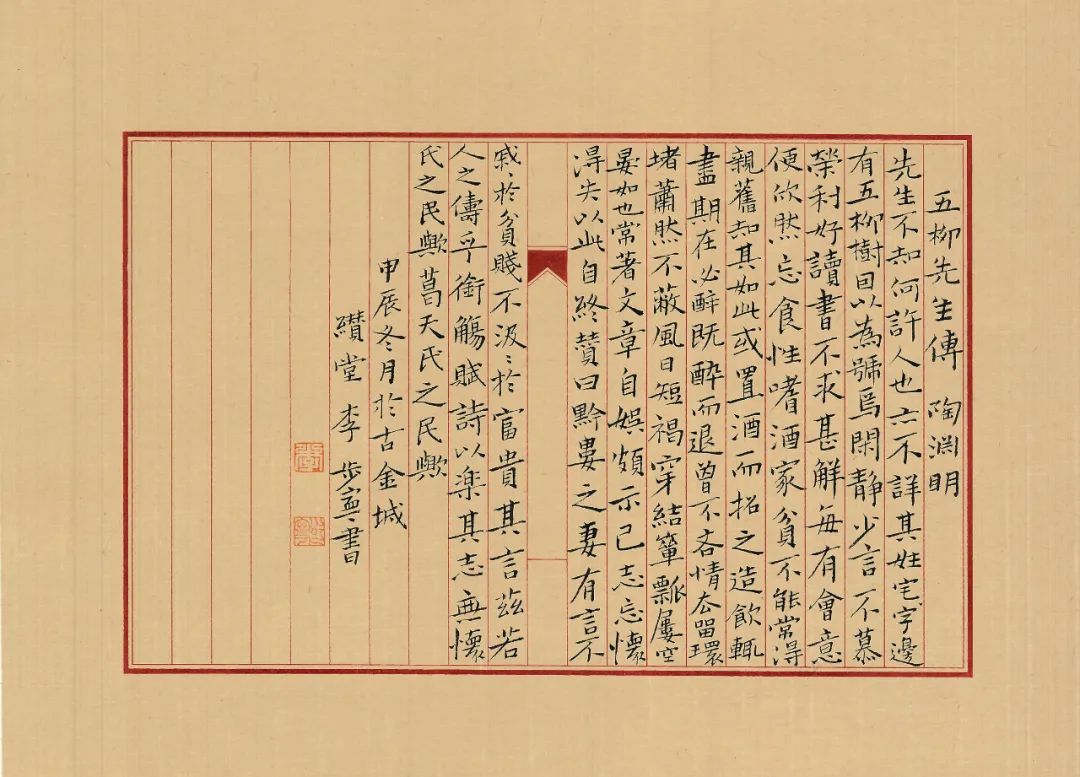 五柳先生傳 陶淵明
先生不知何許人也亦不詳其姓宅字邊
有五柳樹因以為號焉閑靜少言不慕
榮利好讀書不求甚解每有會意
便欣然忘食性嗜酒家貧不能常得
親舊知其如此或置酒而招之造飲輒
盡期在必醉既醉而退曾不吝情去留環
堵蕭然不蔽風日短褐穿結簞瓢屢空
晏如也常著文章自娛頗示己志忘懷
得失以此自終贊曰黔婁之妻有言不
戚〻於貧賤不汲〻於富貴其言茲若
人之儔乎銜觴賦詩以楽其志無懷
氏之民歟葛天氏之民歟
甲辰冬月於古金城
纘堂 李步寧書